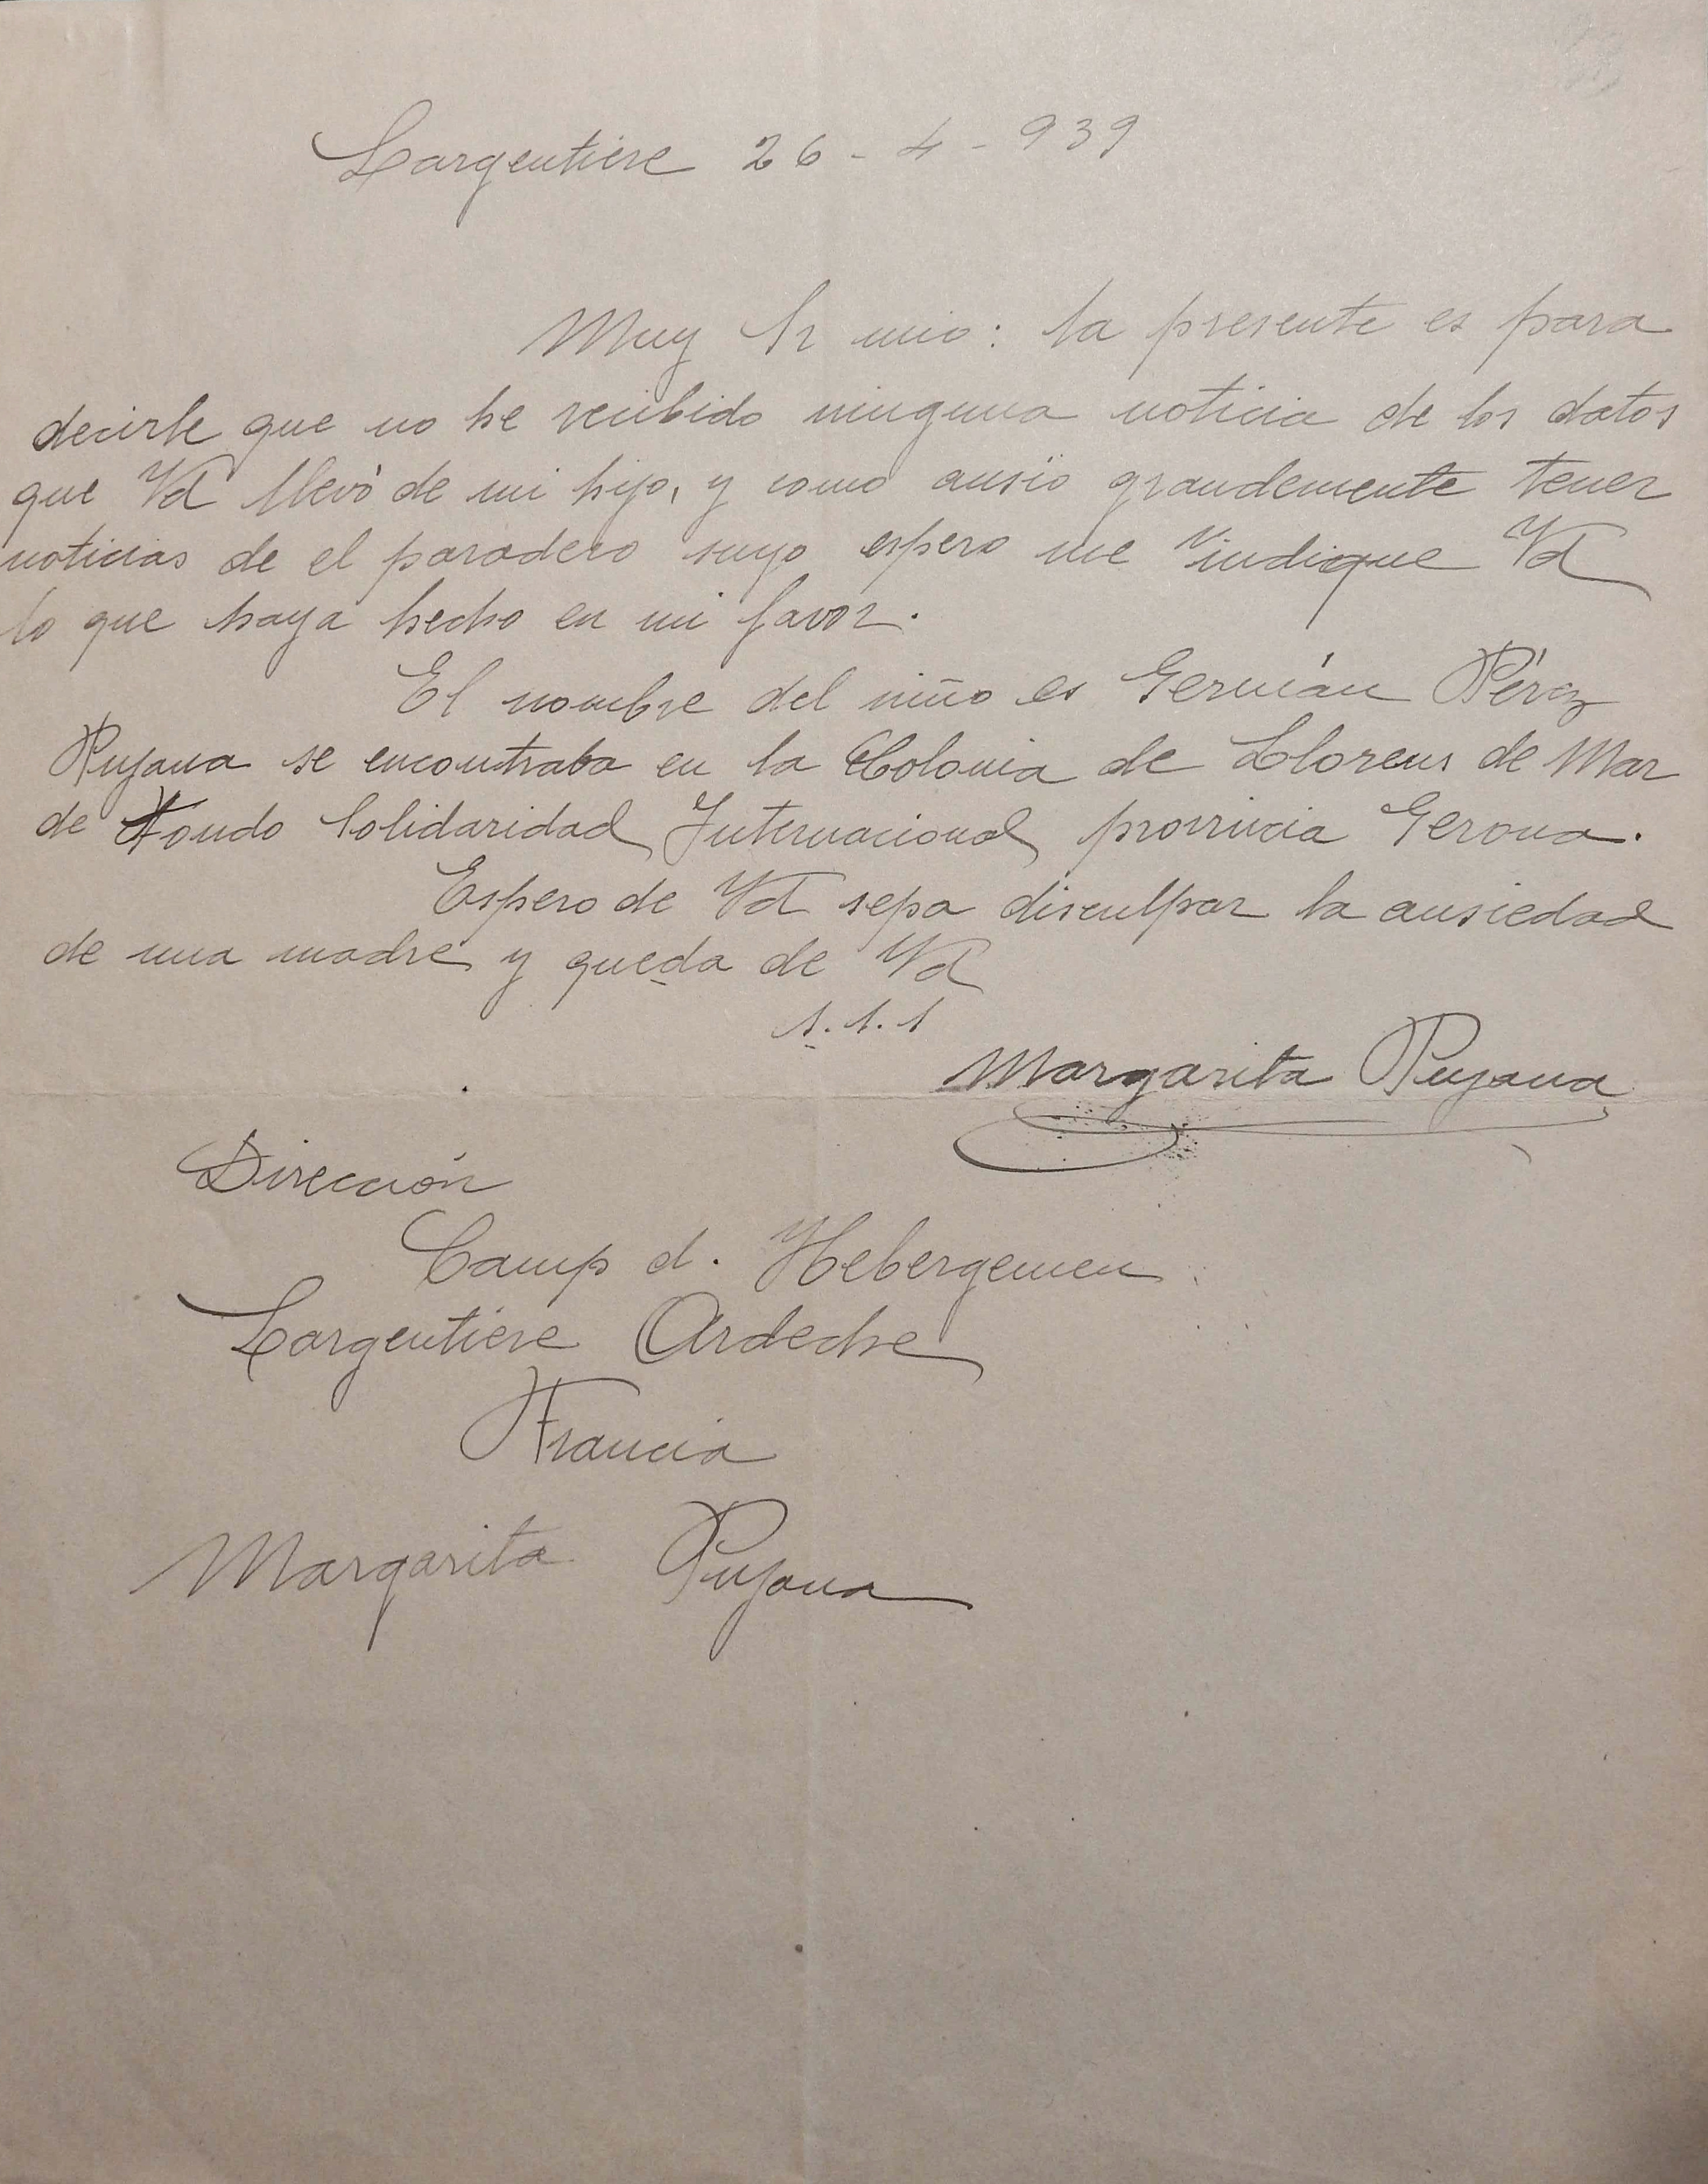 Largentiere 26 - 4 - 939
Muy Sr mio: la presente es para
decirle que no he recibido ninguna noticia de los datos
que Vd llevó de mi hijo, y como ansio grandemente tener
noticias de el paradero suyo espero me indique Vd
lo que haya hecho en mi favor.
El nombre del niño es Germán Pérez
Pujana se encontraba en la Colonia de Llorens de Mar
de Fondo Solidaridad Internacional provincia Gerona.
Espero de Vd sepa disculpar la ansiedad
de una madre y queda de Vd
s.s.s
Margarita Pujana
Dirección
Camp d. Hebergemen
Largentiere Ardeche
Francia
Margarita Pujana